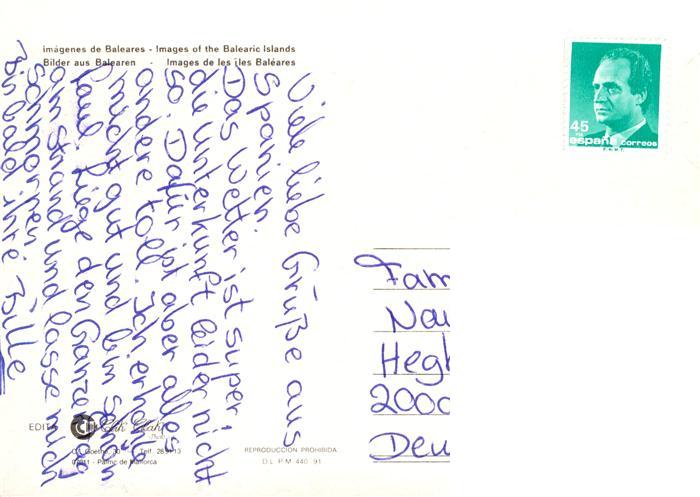 imágenes de Baleares - Images of the Balearic Islands
Bilder aus Balearen - Images de les îles Baléares
45
españa correos
F.N.M.T.
Viele liebe Grüße aus
Spanien.
Das Wetter ist super;
die Unterkunft leider nicht
so. Dafür ist aber alles
andere toll. Ich erhole
mich gut und bin schon
Liege den Ganzen
am Strand und lasse mich
Bis bald ihre
Fam
Nau
Hegh
2000
Deu
EDITA
Goethe, 30 - Telf.
07011 - Palma de Mallorca
REPRODUCCION PROHIBIDA
D.L. P.M. 440 - 91